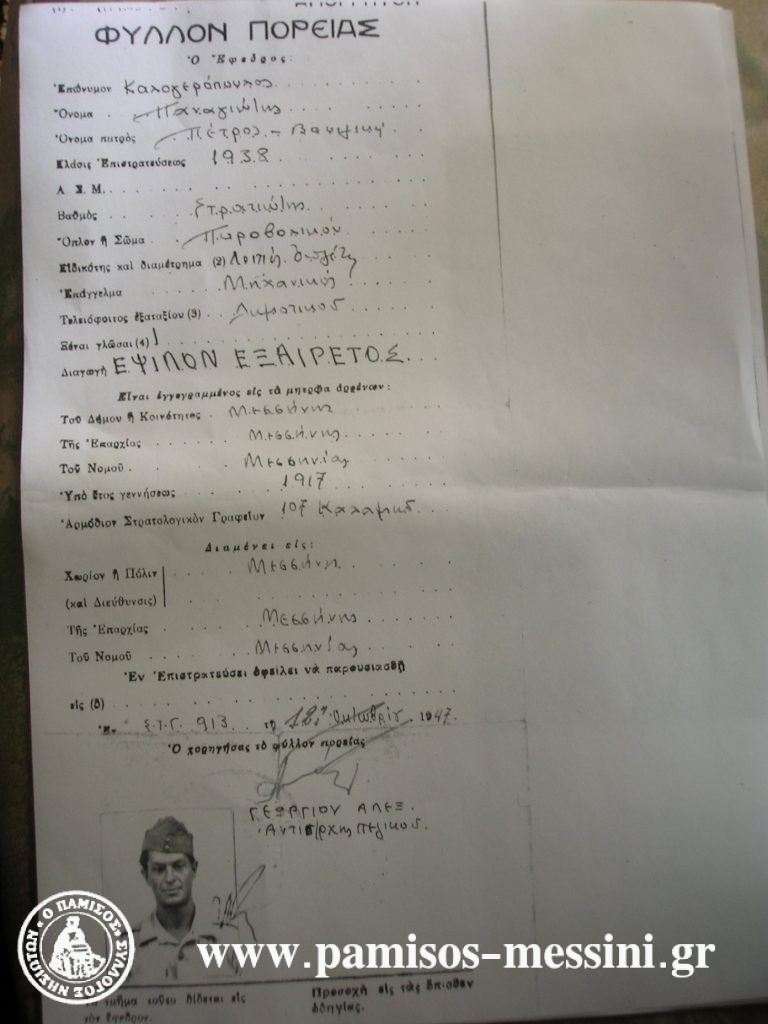 ΦΥΛΛΟΝ ΠΟΡΕΙΑΣ
Ὁ Ἔφεδρος:
Ἐπώνυμον Καλογερόπουλος
Ὄνομα Παναγιώτης
Ὄνομα πατρός Πέτρος - Βασιλική
Κλάσις Ἐπιστρατεύσεως 1938
Α. Σ. Μ.
Βαθμός Στρατιώτης
Ὅπλον ἤ Σῶμα Πυροβολικόν
Εἰδικότης καί διαμέτρημα (2)
Ἐπάγγελμα Μηχανικός
Τελειόφοιτος ἑξαταξίου (3) Δημοτικού
Ξέναι γλῶσσαι (4)
Διαγωγή ΕΨΙΛΟΝ ΕΞΑΙΡΕΤΟΣ
Εἶναι ἐγγεγραμμένος εἰς τά μητρῷα ἀρρένων:
Τοῦ Δήμου ἤ Κοινότητος Μεσσήνης
Τῆς Ἐπαρχίας Μεσσήνης
Τοῦ Νομοῦ Μεσσηνίας
Ὑπό ἔτος γεννήσεως 1917
Ἁρμόδιον Στρατολογικόν Γραφεῖον 107 Καλαμών
Διαμένει εἰς:
Χωρίον ἤ Πόλιν Μεσσήνη
(καί Διεύθυνσις)
Τῆς Ἐπαρχίας Μεσσήνης
Τοῦ Νομοῦ Μεσσηνίας
Ἐν Ἐπιστρατεύσει ὀφείλει νά παρουσιασθῇ
εἰς (5)
Ἐν Σ.Τ.Γ. 913 τῇ 12η Οκτωβρίου 1947
Ὁ χορηγήσας τό φύλλον πορείας
ΓΕΩΡΓΙΟΥ ΑΛΕΞ.
Αντισ/ρχης Πεζικού.
Ο ΠΑΜΙΣΟΣ
ΣΥΛΛΟΓΟΣ ΝΗΣΙΩΤΩΝ
www.pamisos-messini.gr
τμῆμα τοῦτο δίδεται εἰς
τόν ἔφεδρον.
Προσοχή εἰς τάς ὄπισθεν
ὁδηγίας.